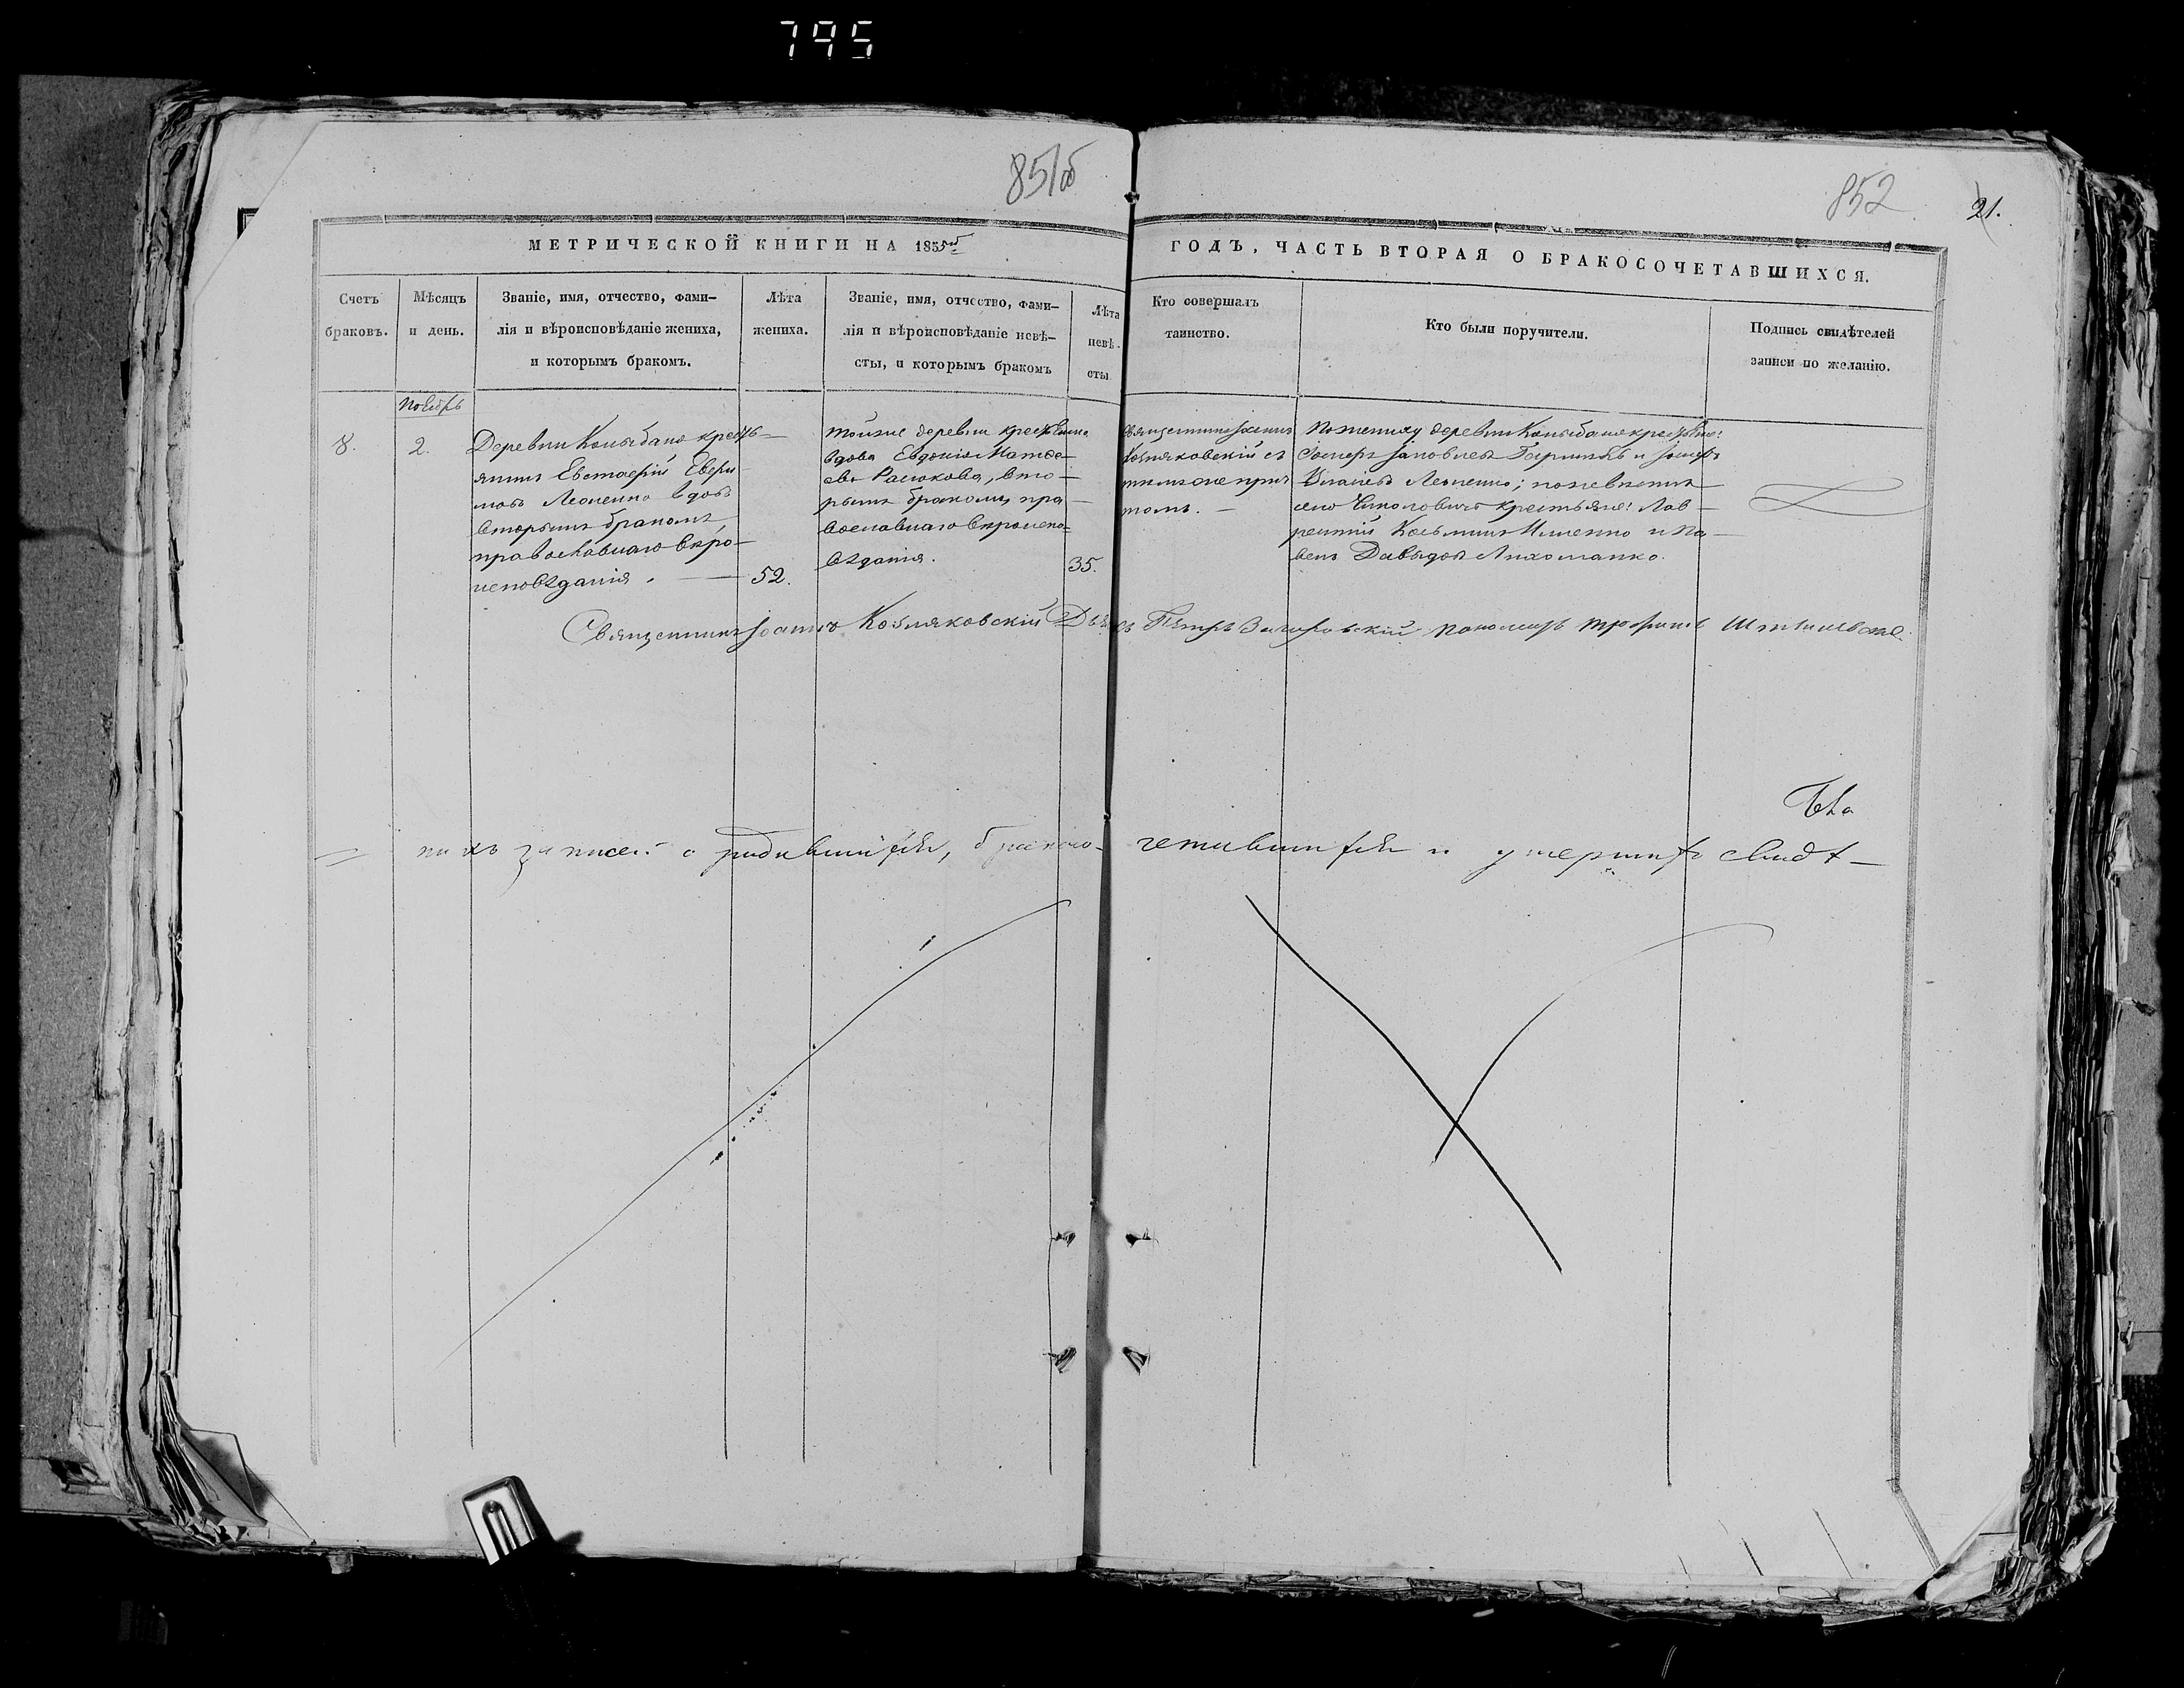 795
851об
852
21.
МЕТРИЧЕСКОЙ КНИГИ НА 1855ый
ГОДЪ, ЧАСТЬ ВТОРАЯ О БРАКОСОЧЕТАВШИХСЯ.
Счетъ
браковъ.
Мѣсяцъ
и день.
Званіе, имя, отчество, фами-
лія и вѣроисповѣданіе жениха,
и которымъ бракомъ.
Лѣта
жениха.
Званіе, имя, отчество, фами-
лія и вѣроисповѣданіе невѣ-
сты, и которымъ бракомъ
Лѣта
невѣ-
сты
Кто совершалъ
таинство.
Кто были поручители.
Подпись свидѣтелей
записи по желанію.
Ноябрь
8.
2.
Деревни кресть-
янинъ Евстафій
Леоненко вдовъ
вторымъ бракомъ,
православнаго вѣро-
исповѣданія.
52.
Тойже деревни крестьянка
вдова Евдокія Матѳе-
ева вто-
рымъ бракомъ, пра-
вославнаго вѣроиспо-
вѣданія.
35.
Священникъ Іоаннъ
съ
причтомъ.
По жениху деревни крестьяне:
Іосифъ Яковлевъ и Іосифъ
Леоненко; по невѣстѣ
село крестьяне: Лав-
рентій Косьминъ и Па-
велъ Давыдовъ Лихоманко.
Священникъ Іоаннъ Козляковскій Дьякъ Петръ Пономарь Трофимъ
записей о родившихся, бракосо-
четавшихся и умершихъ свидѣ-